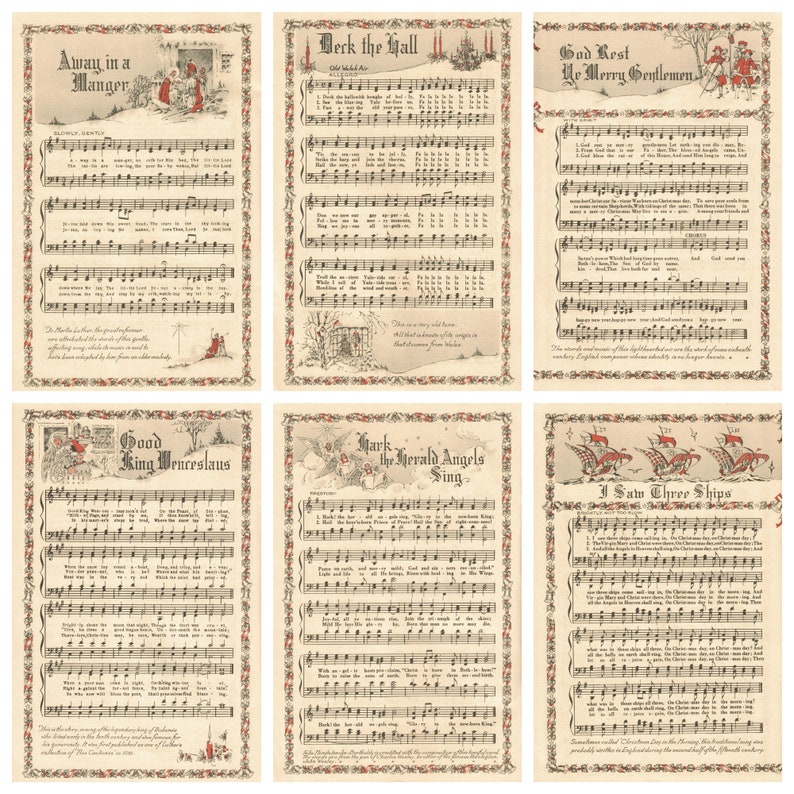 Away in a
Manger
SLOWLY, GENTLY
A - way in a man-ger, no crib for His bed, The lit-tle Lord
The cat-tle are low-ing, the poor Ba-by wakes, But lit-tle Lord
Je-sus laid down His sweet head, The stars in the sky looking
Je-sus, no cry-ing He makes, I love Thee, Lord Je-sus! look
down where He lay, The lit-tle Lord Je-sus asleep in the hay.
down from the sky, And stay by my crib, watch-ing my lul-la-by.
To Martin Luther, the great reformer
are attributed the words of this gentle,
affecting song, while its music is said to
have been adopted by him from an older melody.
Deck the Hall
Old Welsh Air
ALLEGRO
1. Deck the hall with boughs of hol-ly, Fa la la la la la la la la.
2. See the blaz-ing Yule be-fore us, Fa la la la la la la la la.
3. Fast a-way the old year pass-es, Fa la la la la la la la la.
'Tis the sea-son to be jol-ly, Fa la la la la la la la la.
Strike the harp and join the cho-rus, Fa la la la la la la la la.
Hail the new, ye lads and lass-es, Fa la la la la la la la la.
Don we now our gay ap-par-el, Fa la la la la la la la la.
Fol-low me in mer-ry measure, Fa la la la la la la la la.
Sing we joy-ous all to-geth-er, Fa la la la la la la la la.
Troll the an-cient Yule-tide car-ol, Fa la la la la la la la la.
While I tell of Yule-tide treas-ure, Fa la la la la la la la la.
Heed-less of the wind and weath-er, Fa la la la la la la la la.
This is a very old tune.
All that is known of its origin is
that it comes from Wales.
God Rest
Ye Merry Gentlemen
WITH SPIRIT
1. God rest ye mer-ry gentlemen Let noth-ing you dis-may, Re-
2. From God that is our Fa-ther, The bless-ed Angels came, Un-
3. God bless the ru-ler of this House, And send Him long to reign, And
mem-ber Christ our Sav-iour Was born on Christ-mas day, To save poor souls from
to some certain Shepherds, With tidings of the same; That there was born in
many a mer-ry Christ-mas May live to see a-gain. Among your friends and
CHORUS
Satan's power Which had long time gone astray, And God send you
Beth-le-hem, The Son of God by name.
kin-dred, That live both far and near,
hap-py new year, hap-py new year, And God send you a hap-py new year.
The words and music of this lighthearted air are the work of some sixteenth-
century English composer whose identity is no longer known.
Good
King Wenceslaus
Good King Wen-ces-laus look'd out On the Feast of Ste-phen,
When the snow lay round a-bout, Deep, and crisp, and e-ven;
Bright-ly shone the moon that night, Though the frost was cru-el,
When a poor man came in sight, Gath'ring win-ter fu-el.
This is the story, in song, of the legendary king of Bohemia
who lived early in the tenth century and was famous for
his generosity. It was first published as one of Luther's
Hark
the Herald Angels
Sing
PRESTO
1. Hark! the her-ald an-gels sing, "Glo-ry to the new-born King;
2. Hail the heav'n-born Prince of Peace! Hail the Sun of right-eous-ness!
Peace on earth, and mer-cy mild; God and sin-ners rec-on-ciled."
Light and life to all He brings, Risen with heal-ing in His Wings.
Joy-ful, all ye na-tions rise, Join the tri-umph of the skies;
Mild He lays His glo-ry by, Born that man no more may die,
With an-gel-ic host pro-claim, "Christ is born in Beth-le-hem!"
Born to raise the sons of earth, Born to give them sec-ond birth.
Hark! the her-ald an-gels sing, "Glo-ry to the new-born King."
I Saw Three Ships
BRIGHTLY, NOT TOO SLOW
1. I saw three ships come sail-ing in, On Christ-mas day, on Christ-mas day; I
2. The Vir-gin Mary and Christ were there, On Christ-mas day, on Christ-mas day; The
3. And all the Angels in Heaven shall sing, On Christ-mas day, on Christ-mas day; And
saw three ships come sailing in, On Christ-mas day in the morn-ing. And
Vir-gin Mary and Christ were there, On Christ-mas day in the morn-ing. And
all the Angels in Heaven shall sing, On Christ-mas day in the morn-ing. Then
what was in those ships all three, On Christ-mas day, on Christ-mas day? And
all the bells on earth shall ring, on Christ-mas day, on Christ-mas day; And
let us all re-joice a-gain, On Christ-mas day, on Christ-mas day; And
what was in those ships all three, On Christ-mas day in the morn-ing?
all the bells on earth shall ring, On Christ-mas day in the morn-ing.
let us all re-joice a-gain, On Christ-mas day in the morn-ing.
Sometimes called "Christmas Day in the Morning," this traditional song was
probably written in England during the second half of the fifteenth century.